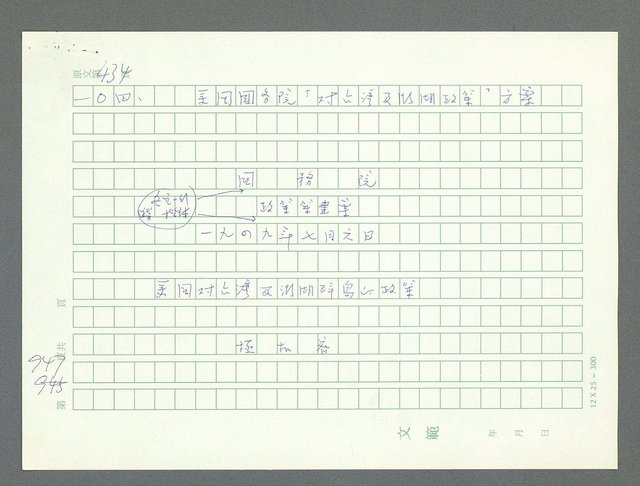 原文第434
一〇四、 美国國务院「对台湾及澎湖政策」方案
国 務 院
政策 草案
一九四九年七月六日
美国对台湾及澎湖群島的政策
極 机 密
頁
共
947
945
第
12 X 25 = 300
文 範
年 月 日